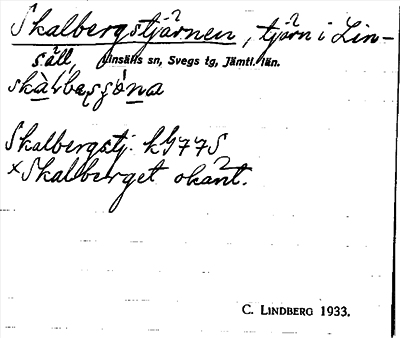 Skalbergstjärnen, tjärn i Lin-
säll, Linsälls sn, Svegs tg, Jämtl. län.
Skalbergstj. kG77S
×Skalberget okänt.
C. LINDBERG 1933.